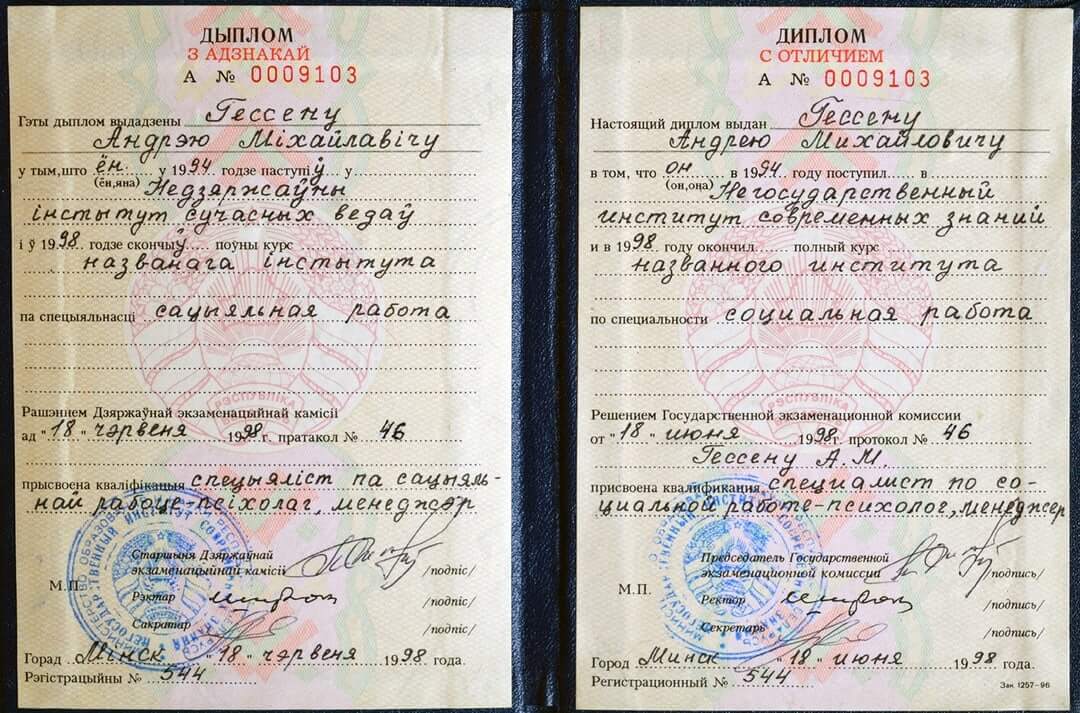 ДЫПЛОМ
З АДЗНАКАЙ
А № 0009103
Гэты дыплом выдадзены Гессену
Андрэю Міхайлавічу
у тым,што ён у 1994 годзе паступіў у
(ён,яна) Недзяржаўны
інстытут сучасных ведаў
і ў 1998 годзе скончыў поўны курс
названага інстытута
па спецыяльнасці сацыяльная работа
РЭСПУБЛІКА
Рашэннем Дзяржаўнай экзаменацыйнай камісіі
ад "18" чэрвеня 1998 г. пратакол № 46
прысвоена кваліфікацыя спецыяліст па сацыяль-
най рабоце-псіхолаг, менеджэр
Старшыня Дзяржаўнай
экзаменацыйнай камісіі /подпіс/
М.П.
Рэктар /подпіс/
Сакратар /подпіс/
Горад Мінск "18" чэрвеня 1998 года.
Рэгістрацыйны № 544
ДИПЛОМ
С ОТЛИЧИЕМ
А № 0009103
Настоящий диплом выдан Гессену
Андрею Михайловичу
в том, что он в 1994 году поступил в
(он,она) Негосударственный
институт современных знаний
и в 1998 году окончил полный курс
названного института
по специальности социальная работа
РЭСПУБЛІКА
Решением Государственной экзаменационной комиссии
от "18" июня 1998 г. протокол № 46
Гессену А.М.
присвоена квалификация специалист по со-
циальной работе-психолог, менеджер
Председатель Государственной
экзаменационной комиссии /подпись/
М.П.
Ректор /подпись/
Секретарь /подпись/
Город Минск "18" июня 1998 года.
Регистрационный № 544
Зак. 1257-96